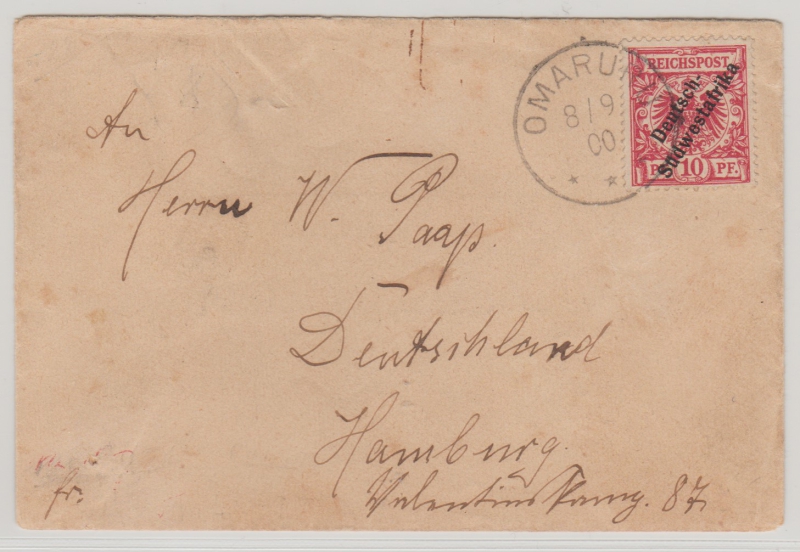 OMARURU
8/9
00
REICHSPOST
Deutsch-
Südwestafrika
10 PF.
An
Herrn W. Paap.
Deutschland
Hamburg.
fr. Valentinskamp. 87.